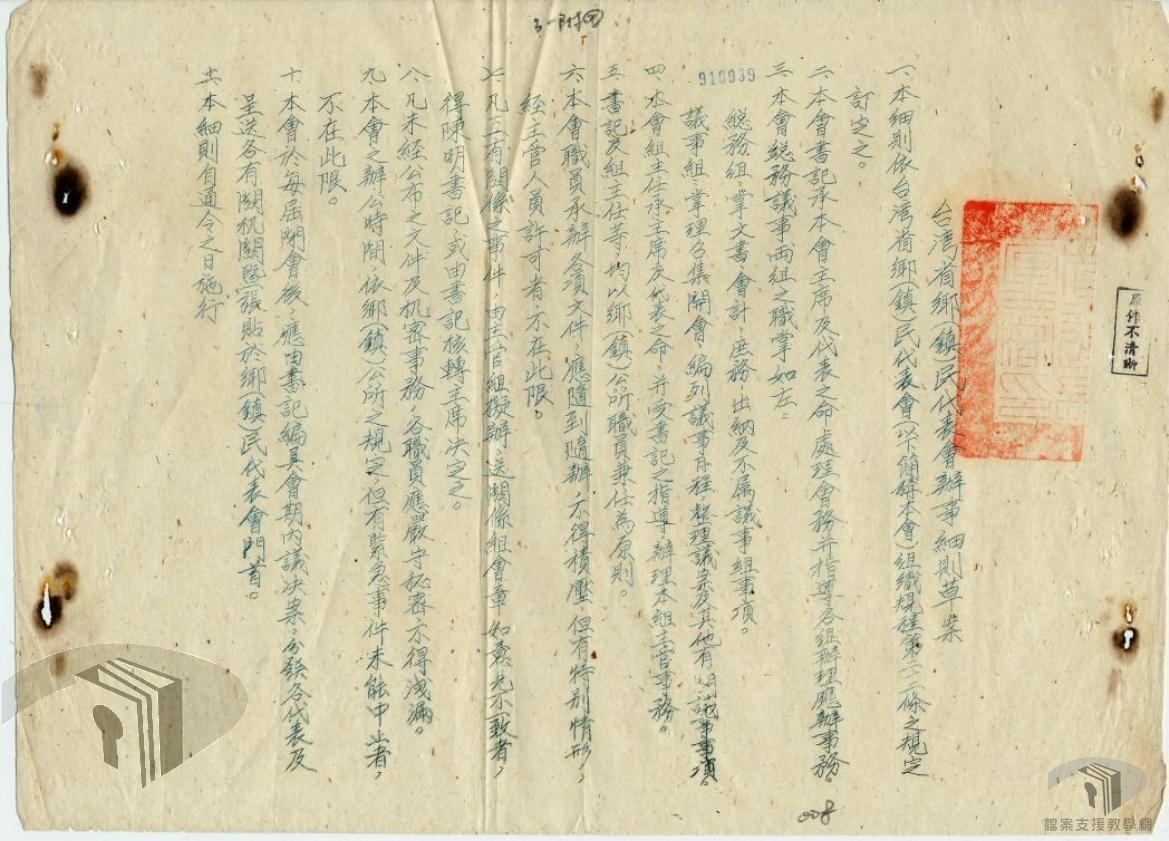 3-附四
原件不清晰
台湾省鄉(鎮)民代表會辦事細則草案
一、本細則依台湾省鄉(鎮)民代表會(以下簡稱本會)組織規程第二十二條之規定
訂定之。
二、本會書記承本會主席及代表之命處理會務并指導各組辦理應辦事務。
三、本會総務議事両組之職掌如左：
総務組：掌文書、會計、庶務、出納及不属議事組事項。
議事組：掌理召集開會、編列議事日程、整理議案及其他有関議事事項。
910939
四、本會組主任承主席及代表之命，并受書記之指導，辦理本組主管事務。
五、書記及組主任等，均以鄉(鎮)公所職員兼任為原則。
六、本會職員承辦各項文件，應隨到隨辦，不得積壓，但有特别情形，
經主管人員許可者不在此限。
七、凡互有関係之事件，由主管組擬辦，送関係組會章，如意見不一致者，
得陳明書記，或由書記核轉主席決定之。
八、凡未経公布之文件及机密事務，各職員應嚴守秘密，不得洩漏。
九、本會之辦公時間，依鄉(鎮)公所之規定，但有緊急事件未能中止者，
不在此限。
十、本會於每屆閉會後，應由書記編具會期内議決案，分發各代表及
呈送各有関机関暨張貼於鄉(鎮)民代表會門首。
十一、本細則自通令之日施行
008
檔案支援教學網